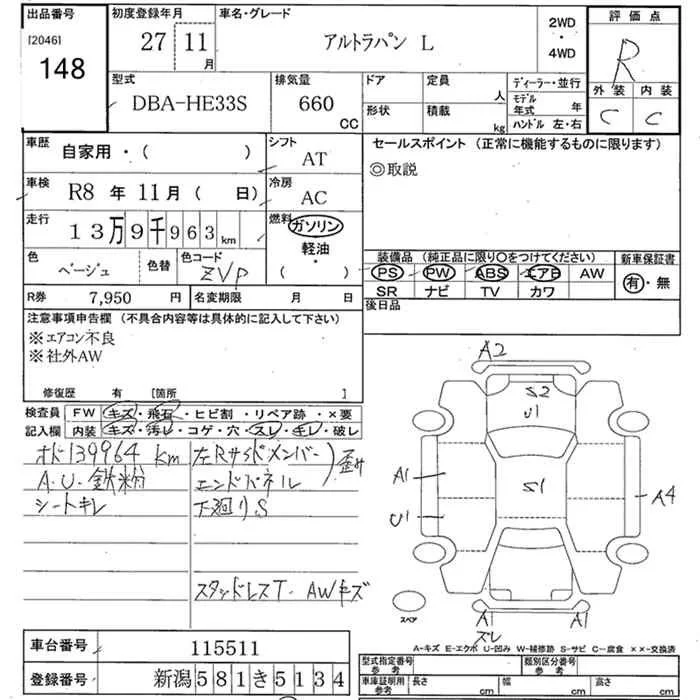 出品番号 初度登録年月 車名・グレード 2WD ・ 4WD 評価点
[2046]
148 27 11月 アルトラパン L R
型式 排気量 ドア 定員 人 ディーラー・並行 外装 内装
DBA-HE33S 660 CC 形状 積載 kg モデル年式 年 C C
ハンドル 左・右
車歴 自家用・( ) シフト AT セールスポイント (正常に機能するものに限ります)
◎取説
車検 R8年11月( 日) 冷房 AC
走行 13万9千963km 燃料 ガソリン
軽油・
( )
色 ベージュ 色替 色コード ZVP
装備品 (純正品に限り○をつけてください) 新車保証書
PS PW ABS エアB AW 有・無
SR ナビ TV カワ
R券 7,950円 名変期限 月 日 後日品
注意事項申告欄 (不具合内容等は具体的に記入して下さい)
※エアコン不良
※社外AW
修復歴 有 [箇所 ]
検査員 FW キズ・飛石・ヒビ割・リペア跡・×要
記入欄 内装 キズ・汚レ・コゲ・穴・スレ・キレ・破レ
オド139964km
A.U.鉄粉
シートキレ
左Rサイドメンバー)歪ミ
エンドパネル
下廻りS
スタッドレスT. AWキズ
A2
S2
U1
A1
S1
A4
U1
スペア
A1
A1
スレ
A-キズ E-エクボ U-凹み W-補修跡 S-サビ C-腐食 ××-交換済
車台番号 115511
登録番号 新潟581き5134
型式指定番号 参考 類別区分番号 参考
車庫証明用 参考 長さ cm 幅 cm 高さ cm